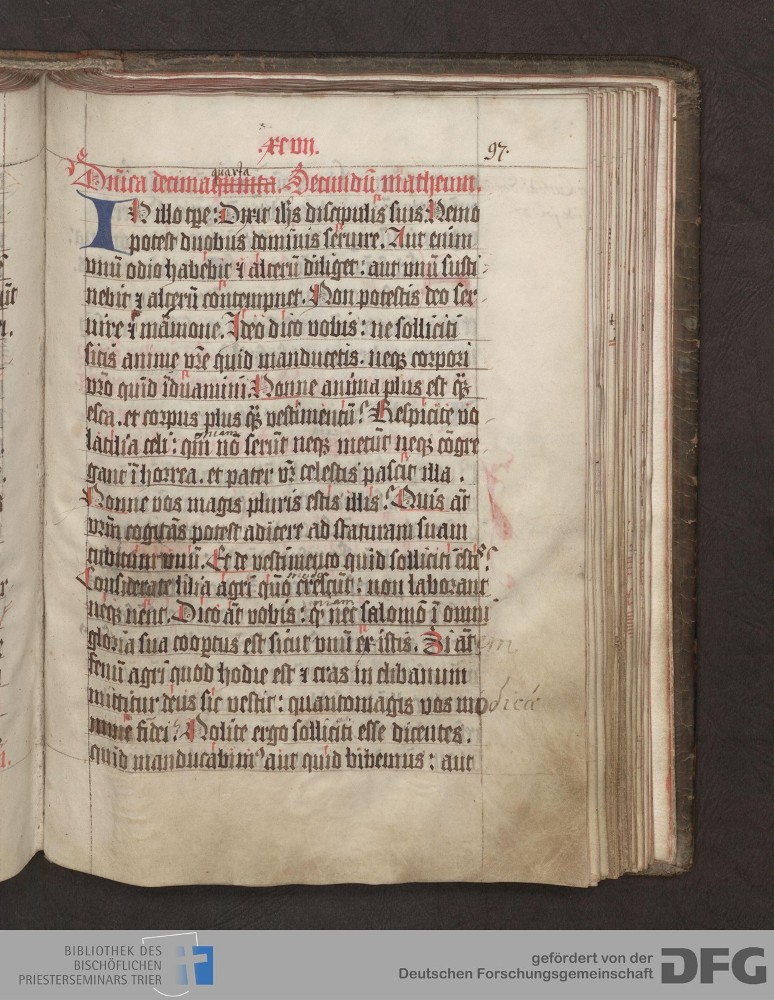 .xcvii.
97.
quarta
Dn̄ica decimaquinta. Secundū matheum.
IN illo tp̄e: Dixit ih̄s discipulis suis. Nemo
potest duobus dominis seruire. Aut enim
vnū odio habebit ⁊ alterū diliget: aut vnū susti
nebit ⁊ alterū contempnet. Non potestis deo ser
uire ⁊ māmone. Ideo dico vobis: ne solliciti
sitis anime vr̄e quid manducetis. neqʒ corpori
vr̄o quid īduamini. Nonne anima plus est qʒ̄
esca. et corpus plus qʒ̄ vestimentū? Respicite vo
latilia celi: qm̄ nō serūt neqʒ metūt neqʒ cōgre
niam
gant ī horrea. et pater vr̄ celestis pascit illa.
Nonne vos magis pluris estis illis? Quis aūt
vrm̄ cogitās potest adicere ad staturam suam
cubitum vnū. Et de vestimento quid solliciti estis?
Considerate lilia agri quō crescūt: non laborant
neqʒ nent. Dico aūt vobis: q̄ nec salomō ī omni
niam
gloria sua coopertus est sicut vnū ex istis. Si aūt
em
fenū agri quod hodie est ⁊ cras in clibanum
mittitur deus sic vestit: quantomagis vos modicē
nime fidei? Nolite ergo solliciti esse dicentes.
quid manducabim' aut quid bibemus: aut
BIBLIOTHEK DES
BISCHÖFLICHEN
PRIESTERSEMINARS TRIER
gefördert von der
Deutschen Forschungsgemeinschaft
DFG